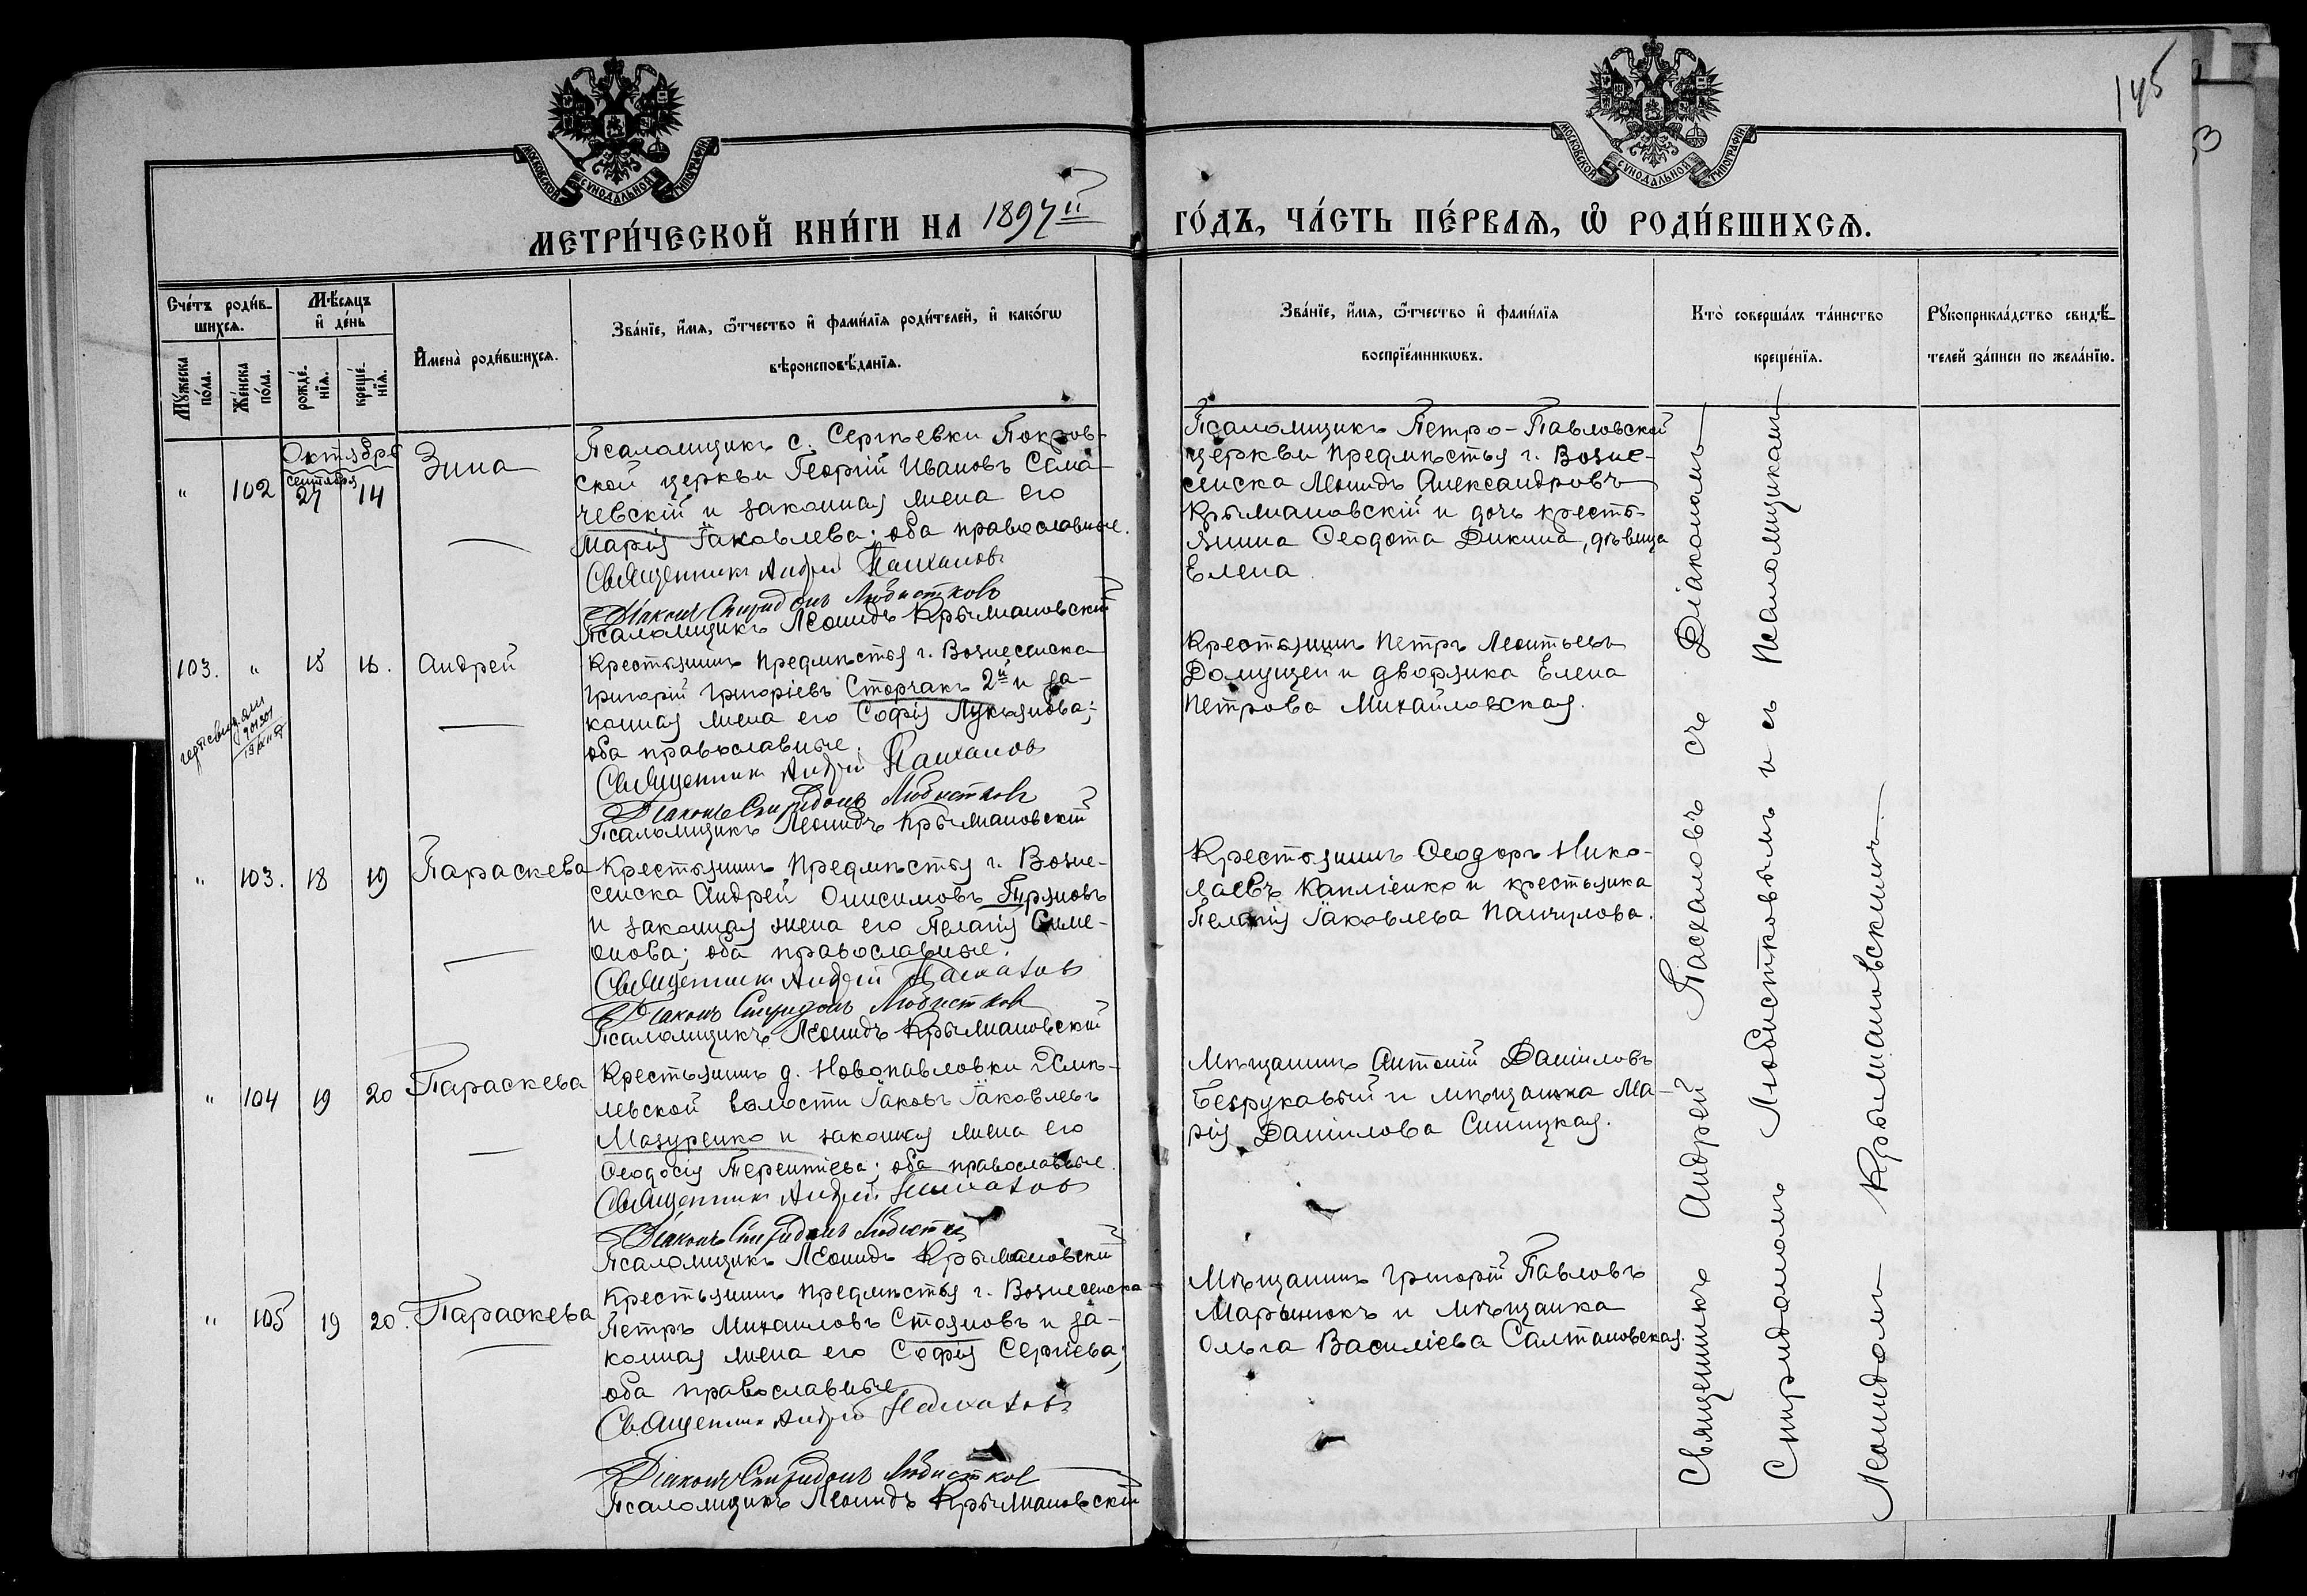 145
МОСКОВСКОЙ СѴНОДАЛЬНОЙ ТИПОГРАФІИ
МОСКОВСКОЙ СѴНОДАЛЬНОЙ ТИПОГРАФІИ
МЕТРИ́ЧЕСКОЙ КНИ́ГИ НА 1897й ГО́ДЪ, ЧА́СТЬ ПЕ́РВАѦ, Ѡ҆ РОДИ́ВШИХСѦ.
Сче́тъ роди́в-
шихсѧ.
Мꙋ́жеска по́ла.
Же́нска по́ла.
Мѣ́сѧцъ
и҆ де́нь
рожде́-
нїѧ.
креще́-
нїѧ.
И҆мена̀ роди́вшихсѧ.
Зва́нїе, и҆́мѧ, ѻ҆́тчество и҆ фами́лїѧ роди́телей, и҆ како́гѡ
вѣроисповѣ́данїѧ.
Зва́нїе, и҆́мѧ, ѻ҆́тчество и҆ фами́лїѧ
воспрїе́мникѡвъ.
Кто̀ соверша́лъ та́инство
креще́нїѧ.
Рꙋкоприкла́дство свидѣ́-
телей за́писи по жела́нїю.
Октябрь
" 102 сентября 27 14 Зина
Псаломщикъ с. Сергѣевки Покров-
ской церкви Георгій Ивановъ Сема-
чевскій и законная жена его
Марія Іаковлева; оба православные.
Священникъ Андрей Пасхаловъ
Діаконъ Спиридонъ Любистковъ
Псаломщикъ Леонидъ Крыжановскій
Псаломщикъ Петро-Павловской
церкви предмѣстья г. Возне-
сенска Леонидъ Александровъ
Крыжановскій и дочь кресть-
янина Ѳеодота Дикина, дѣвица
Елена
103. " 15 16. Андрей
Крестьянинъ предмѣстья г. Вознесенска
Григорій Григоріевъ Сторчакъ 2й и за-
конная жена его Софія Лукьянова;
оба православные.
Священникъ Андрей Пасхаловъ
Діаконъ Спиридонъ Любистковъ
Псаломщикъ Леонидъ Крыжановскій
Крестьянинъ Петръ Леонтьевъ
Домущей и дворянка Елена
Петрова Михайловская.
" 103. 18 19 Параскева
Крестьянинъ предмѣстья г. Возне-
сенска Андрей Онисимовъ Пуряновъ
и законная жена его Пелагія Симе-
онова; оба православные.
Священникъ Андрей Пасхаловъ
Діаконъ Спиридонъ Любистковъ
Псаломщикъ Леонидъ Крыжановскій
Крестьянинъ Ѳеодоръ Нико-
лаевъ Капліенко и крестьянка
Пелагія Іаковлева Панчулова.
" 104 19 20 Параскева
Крестьянинъ д. Новопавловки
волости Іаковъ Іаковлевъ
Мазуренко и законная жена его
Ѳеодосія Терентіева; оба православные.
Священникъ Андрей Пасхаловъ
Діаконъ Спиридонъ Любистковъ
Псаломщикъ Леонидъ Крыжановскій
Мѣщанинъ Антоній Даніиловъ
Безрукавый и мѣщанка Ма-
рія Даніилова Синицкая.
" 105 19 20. Параскева
Крестьянинъ предмѣстья г. Вознесенска
Петръ Михаиловъ Стояновъ и за-
конная жена его Софія Сергіева;
оба православные
Священникъ Андрей Пасхаловъ
Діаконъ Спиридонъ Любистковъ
Псаломщикъ Леонидъ Крыжановскій
Мѣщанинъ Григорій Павловъ
Марынюкъ и мѣщанка
Ольга Василіева Салтановская.
Священникъ Андрей Пасхаловъ съ Діакономъ
Спиридономъ Любистковымъ и съ Псаломщикомъ
Леонидомъ Крыжановскимъ